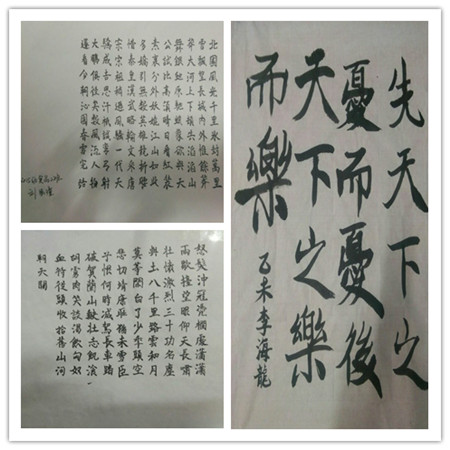 北國風光千里冰封萬里
雪飄望長城內外惟餘莽
莽大河上下頓失滔滔山
舞銀蛇原馳蠟象欲與天
公試比高須晴日看紅裝
素裹分外妖嬈江山如此
多嬌引無數英雄競折腰
惜秦皇漢武略輸文采唐
宗宋祖稍遜風騷一代天
驕成吉思汗祇識彎弓射
大鵰俱往矣數風流人物
還看今朝沁園春雪
怒髮沖冠憑欄處瀟瀟
雨歇擡望眼仰天長嘯
壯懷激烈三十功名塵
與土八千里路雲和月
莫等閒白了少年頭空
悲切靖康恥猶未雪臣
子恨何時滅駕長車踏
破賀蘭山缺壯志飢湌
胡虜肉笑談渴飲匈奴
血待從頭收拾舊山河
朝天闕
先天下之
憂而憂後
天下之樂
而樂
乙未李海龍